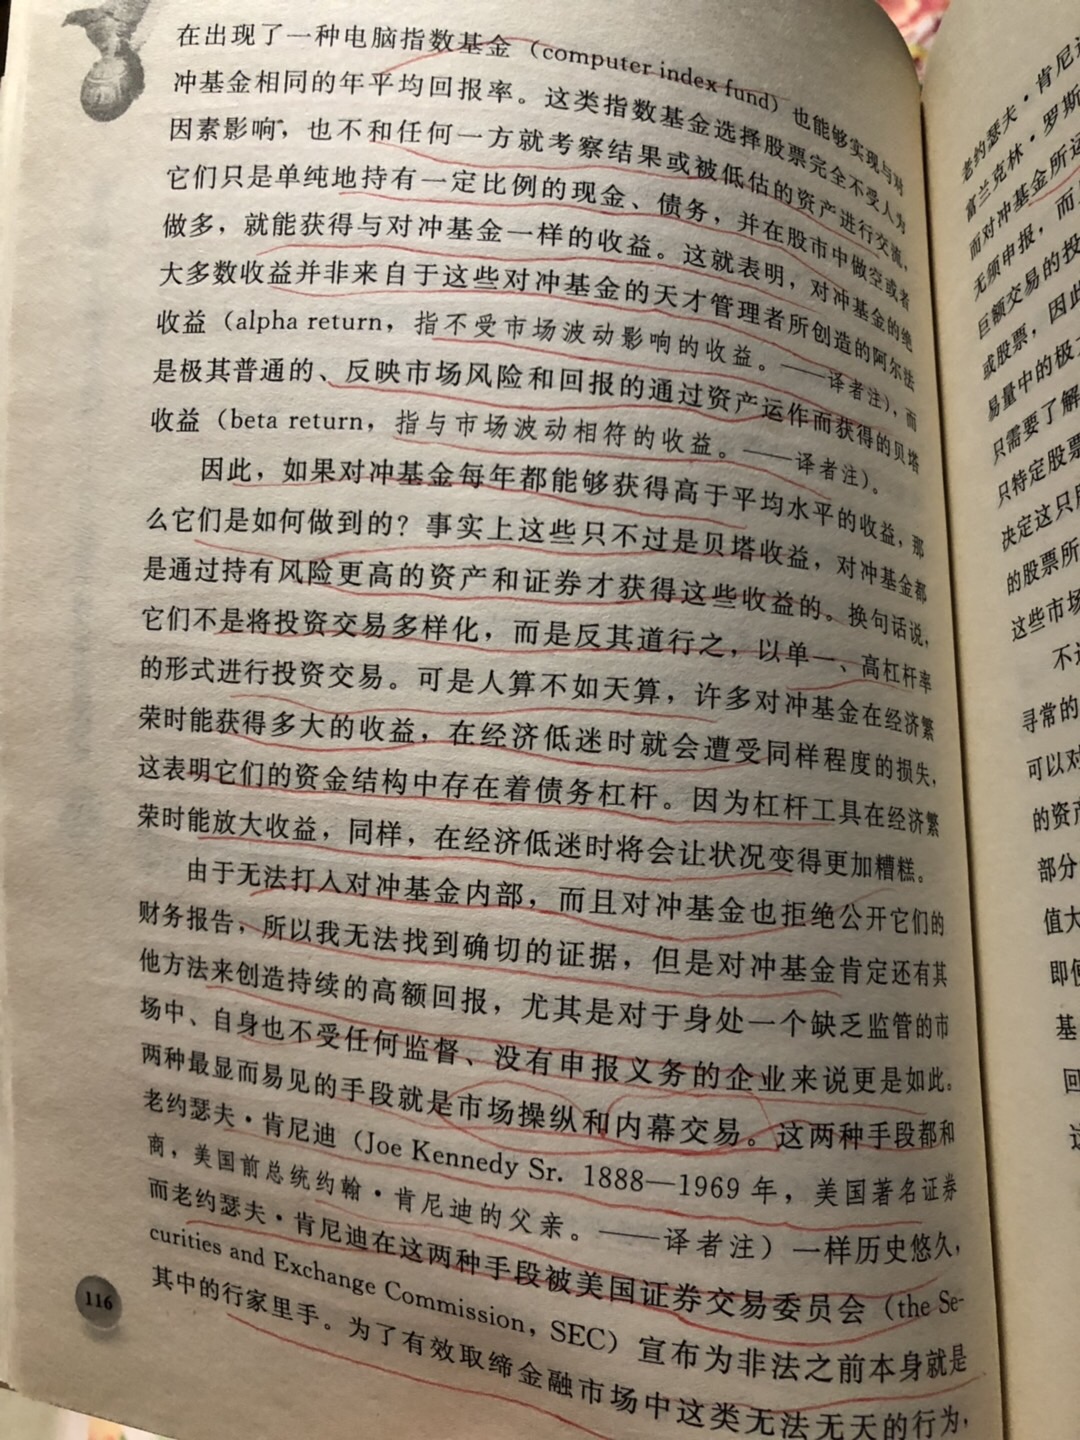 在出现了一种电脑指数基金（computer index fund）也能够实现与对
冲基金相同的年平均回报率。这类指数基金选择股票完全不受人为
因素影响，也不和任何一方就考察结果或被低估的资产进行交流，
它们只是单纯地持有一定比例的现金、债务，并在股市中做空或者
做多，就能获得与对冲基金一样的收益。这就表明，对冲基金的绝
大多数收益并非来自于这些对冲基金的天才管理者所创造的阿尔法
收益（alpha return，指不受市场波动影响的收益。——译者注），而
是极其普通的、反映市场风险和回报的通过资产运作而获得的贝塔
收益（beta return，指与市场波动相符的收益。——译者注）。
因此，如果对冲基金每年都能够获得高于平均水平的收益，那
么它们是如何做到的？事实上这些只不过是贝塔收益，对冲基金都
是通过持有风险更高的资产和证券才获得这些收益的。换句话说，
它们不是将投资交易多样化，而是反其道行之，以单一、高杠杆率
的形式进行投资交易。可是人算不如天算，许多对冲基金在经济繁
荣时能获得多大的收益，在经济低迷时就会遭受同样程度的损失，
这表明它们的资金结构中存在着债务杠杆。因为杠杆工具在经济繁
荣时能放大收益，同样，在经济低迷时将会让状况变得更加糟糕。
由于无法打入对冲基金内部，而且对冲基金也拒绝公开它们的
财务报告，所以我无法找到确切的证据，但是对冲基金肯定还有其
他方法来创造持续的高额回报，尤其是对于身处一个缺乏监管的市
场中、自身也不受任何监督、没有申报义务的企业来说更是如此。
两种最显而易见的手段就是市场操纵和内幕交易。这两种手段都和
老约瑟夫·肯尼迪（Joe Kennedy Sr. 1888—1969年，美国著名证券
商，美国前总统约翰·肯尼迪的父亲。——译者注）一样历史悠久，
而老约瑟夫·肯尼迪在这两种手段被美国证券交易委员会（the Se-
curities and Exchange Commission，SEC）宣布为非法之前本身就是
其中的行家里手。为了有效取缔金融市场中这类无法无天的行为，
116
老约瑟夫·肯尼迪
富兰克林·罗斯
而对冲基金所运
无须申报，而
巨额交易的投
或股票，因此
易量中的极
只需要了解
只特定股票
决定这只
的股票所
这些市场
不
寻常的
可以对
的资产
部分
值大
即使
基
回